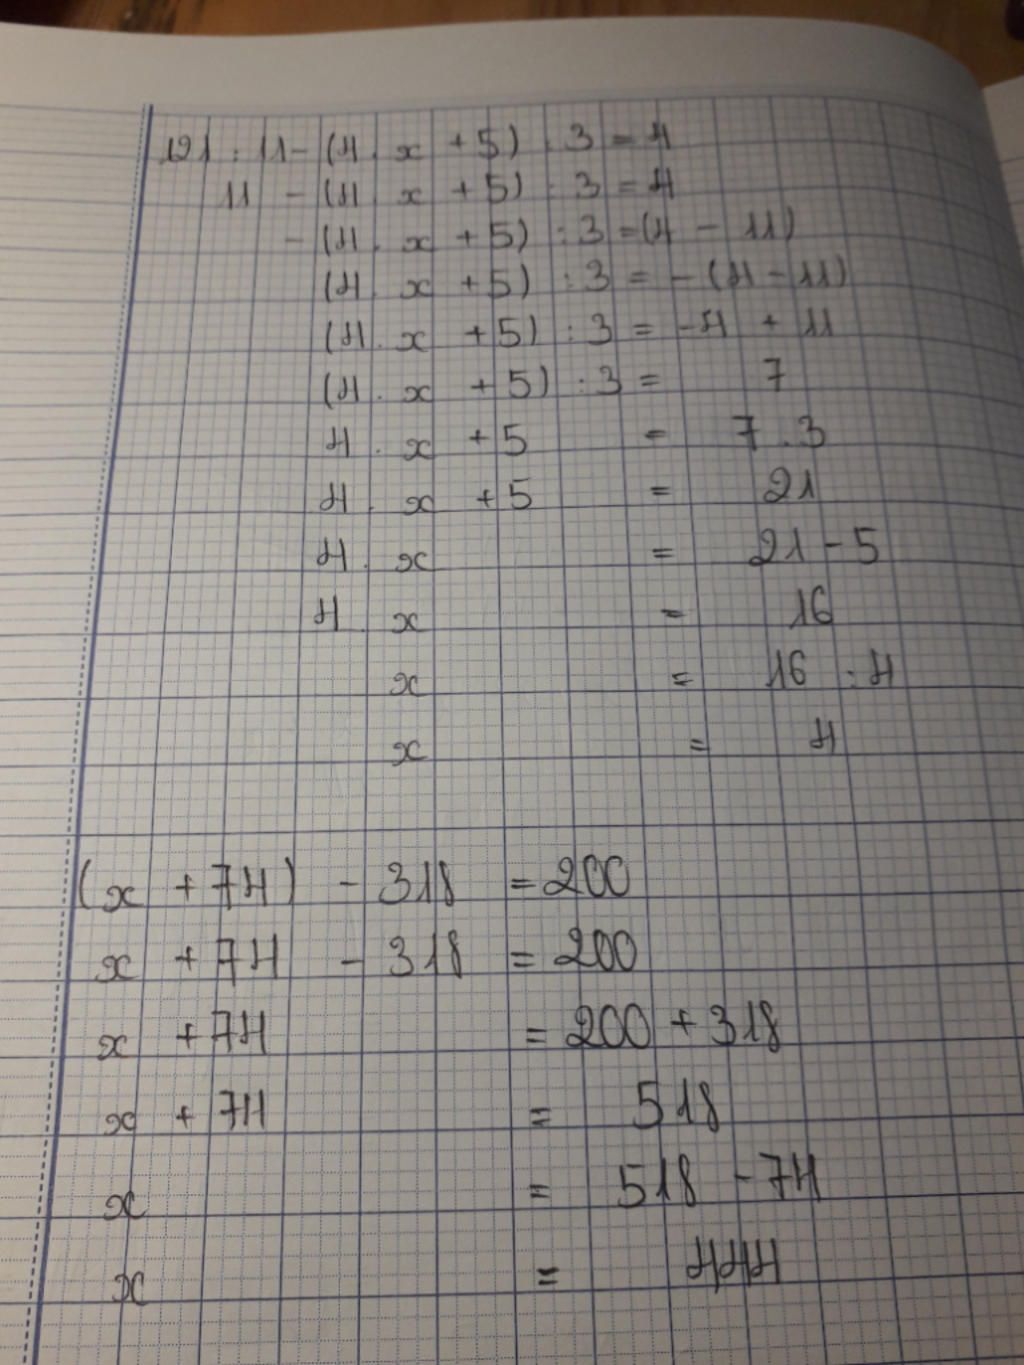 121 : 11 - (4 . x + 5) : 3 = 4
11 - (4 . x + 5) : 3 = 4
- (4 . x + 5) : 3 = (4 - 11)
(4 . x + 5) : 3 = - (4 - 11)
(4 . x + 5) : 3 = -4 + 11
(4 . x + 5) : 3 = 7
4 . x + 5 = 7 . 3
4 . x + 5 = 21
4 . x = 21 - 5
4 . x = 16
x = 16 : 4
x = 4
(x + 74) - 318 = 200
x + 74 - 318 = 200
x + 74 = 200 + 318
x + 74 = 518
x = 518 - 74
x = 444